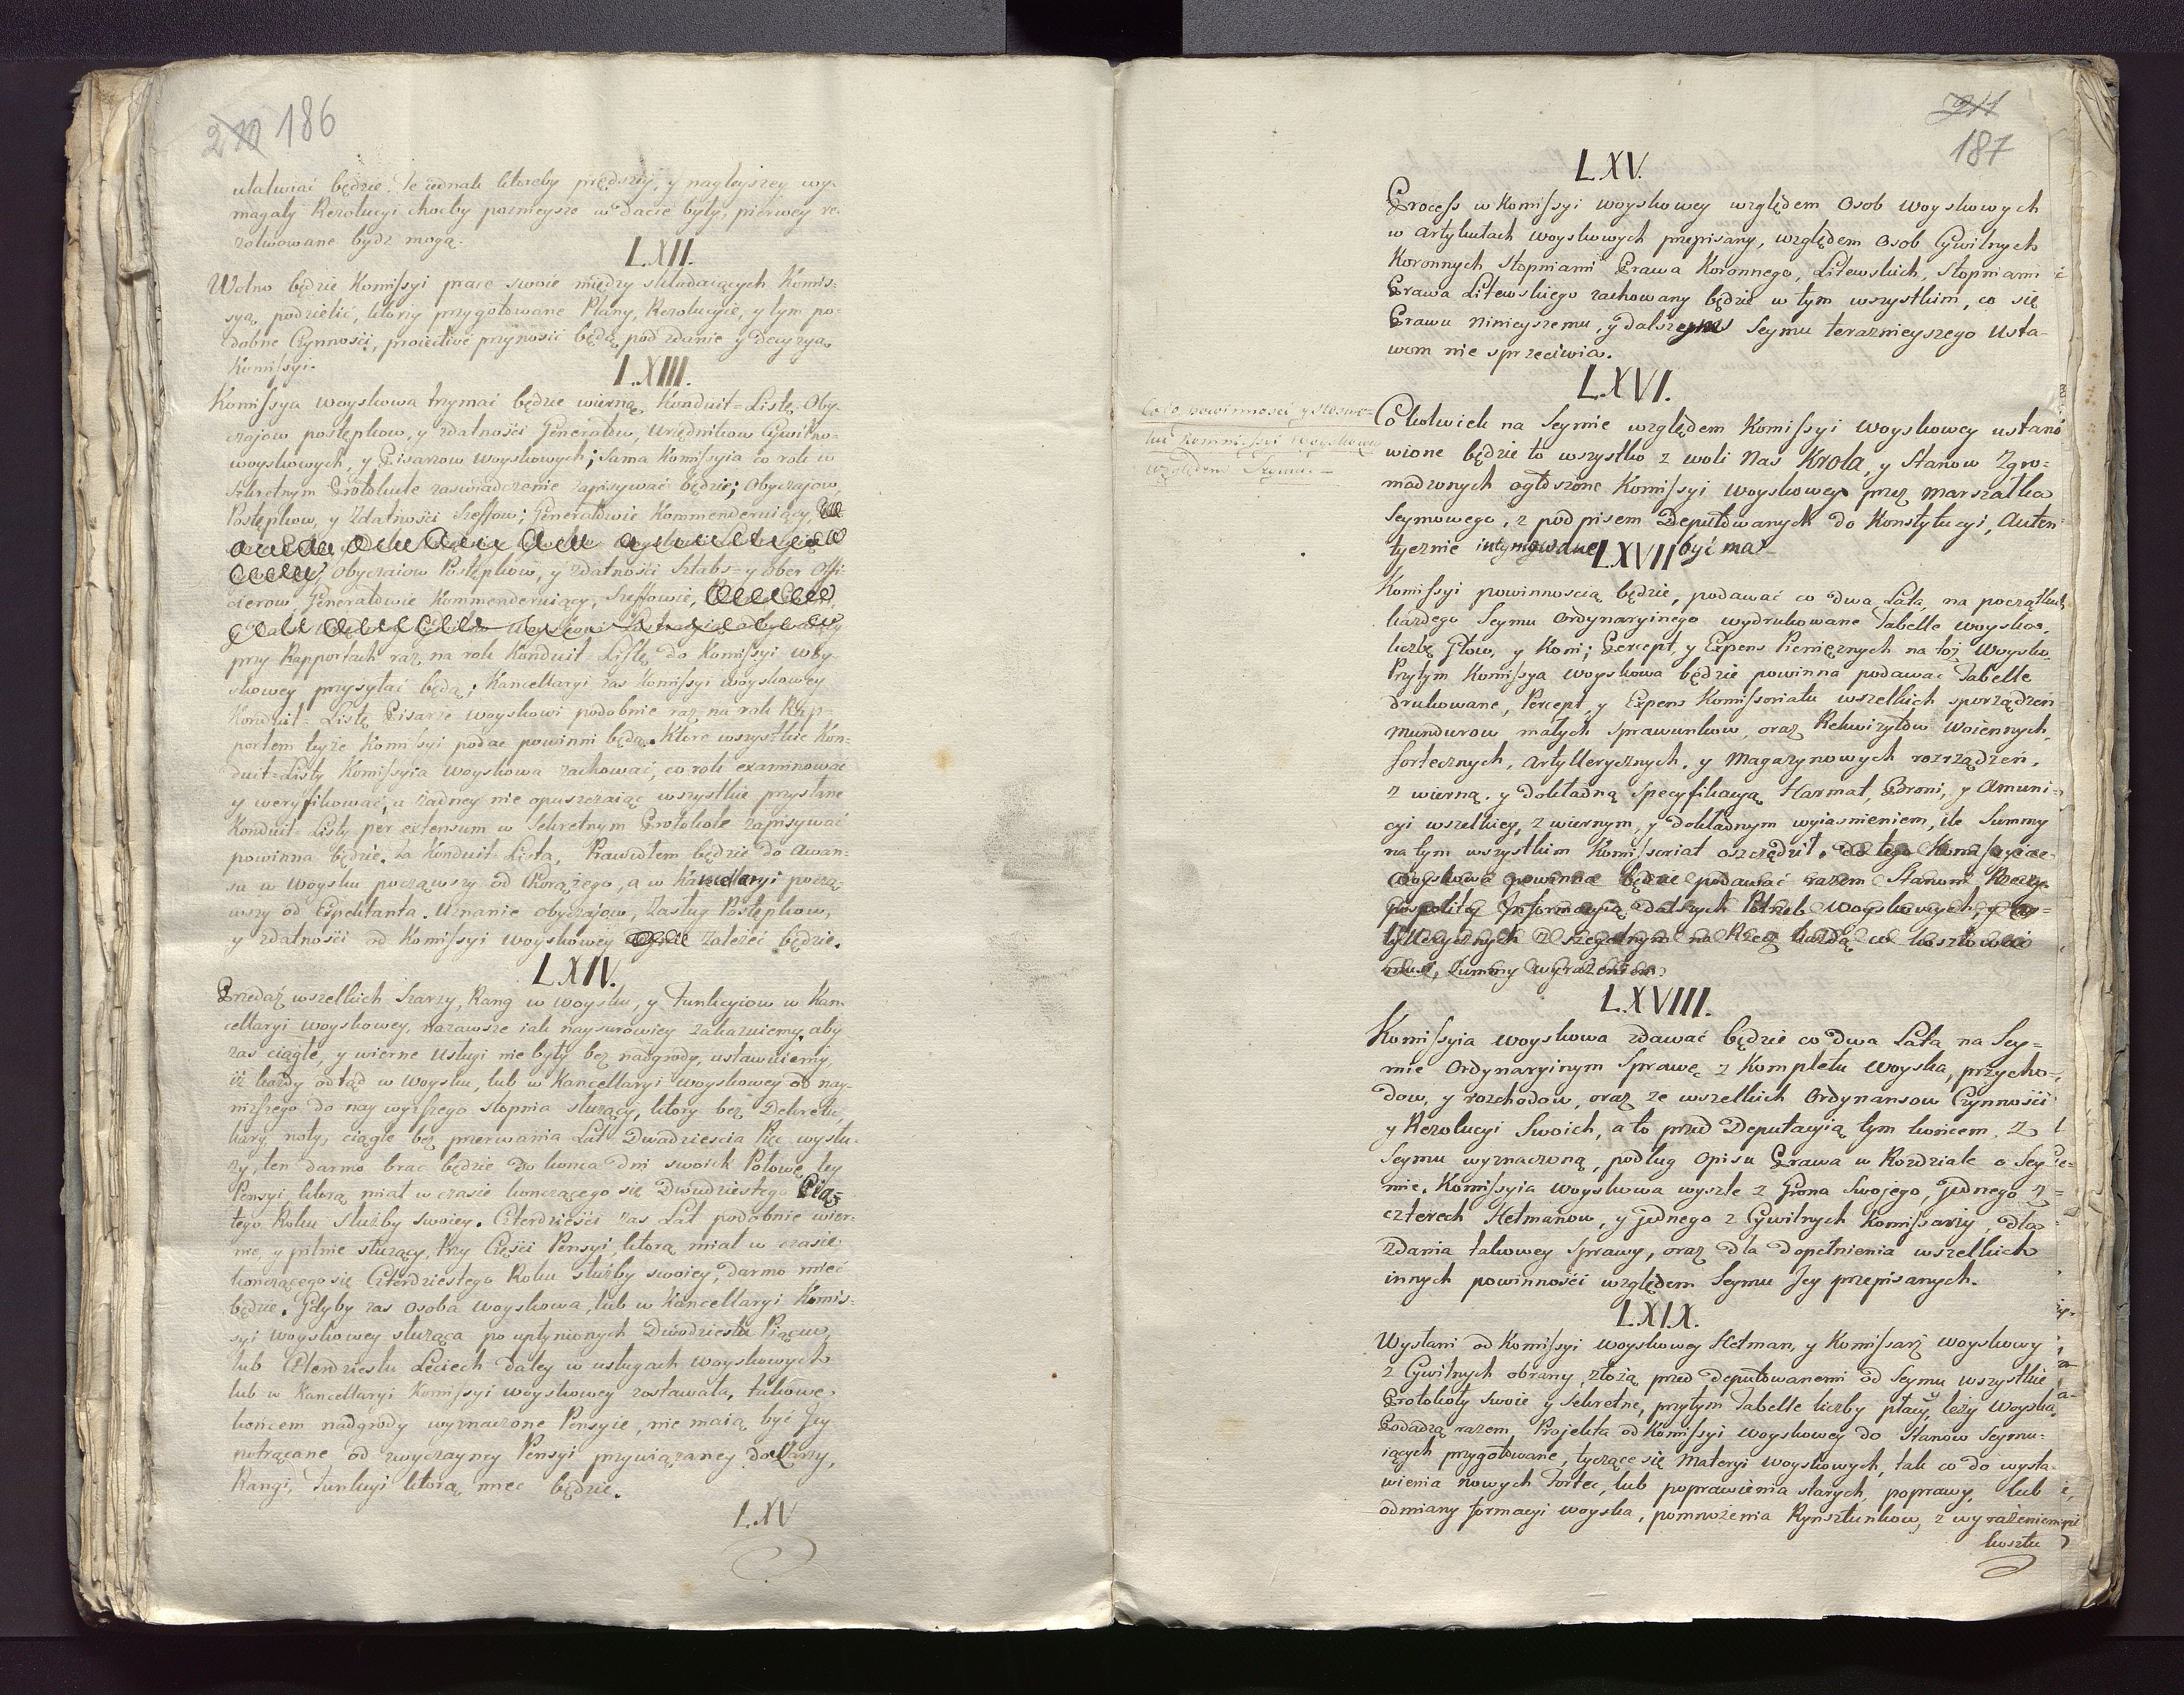 186
ułatwiać będzie. Te iednak ktoreby prędszey, y nagleyszey wy-
magały Rezolucyi choćby poznieysze w dacie były, pierwey re-
zolwowane bydz mogą.
LXII.
Wolno będzie Komissyi prace swoie między składaiących Komis-
syą, podzielić, ktorzy przygotowane Plany, Rezolucyie, y tym po-
dobne Czynności, przynosić będą pod zdanie y decyzyą
Komissyi.
LXIII.
Komissya woyskowa trzymać będzie wierną Konduit=Listę Oby-
czaiow postępkow, y zdatności Generałow, Urzędnikow Cywilno-
woyskowych, y Pisarzow woyskowych; sama Komissyia co rok w
Sekretnym Protokule zaswiadczenie zapisywać będzie; Obyczaiow,
Postępkow, y Zdatności Szeffow; Generałowie Kommenderuiący,
Obyczaiow Postępkow, y zdatności Sztabs=y Ober Offi-
cierow Generałowie Kommenderuiący, Szeffowie,
przy Rapportach raz na rok Konduit=Listę do Komissyi woy-
skowey przysyłać będą; Kancellaryi zas Komissyi woyskowey
Konduit=Listę Pisarze woyskowi podobnie raz na rok Rap-
portem teyże Komissyi podac powinni będą. Ktore wszystkie Kon-
duit=Listy Komissyia woyskowa zachować, co rok examinować
y weryfikować, a żadney nie opuszczaiąc wszystkie przysłane
Konduit=Listy per extensum w Sekretnym Protokole zapisywać
powinna będzie. Ta Konduit Lista, Prawidłem będzie do Awan-
su w woysku począwszy od Chorążego, a w Kancellaryi począ-
wszy od Expektanta. Uznanie obyczajow, Zasług Postępkow,
y zdatności od Komissyi woyskowey zależeć będzie.
LXIV.
Przedaż wszelkich Szarzy, Rang w woysku, y Funkcyiow w Kan-
cellaryi woyskowey, nazawsze iak naysurowiey zakazuiemy, aby
zas ciągłe, y wierne usługi nie były bez nadgrody, ustawuiemy,
iż każdy odtąd w woysku, lub w Kancellaryi woyskowey od nay-
niższego do nay wyższego stopnia służący, ktory bez Dekretu,
kary, noty, ciągle bez przerwania Lat Dwadziescia Pięc wysłu-
ży, ten darmo brac będzie do konca dni swoich Połowę tey
Pensyi, ktorą miał w czasie konczącego się Dwudziestego Pią-
tego Roku służby swoiey. Czterdzieści zas Lat podobnie wier-
nie, y pilnie służący, trzy Części Pensyi, ktorą miał w czasie
konczącego się Czterdziestego Roku służby swoiey, darmo mieć
będzie. Gdyby zas osoba woyskowa, lub w Kancellaryi Komis-
syi woyskowey służąca po upłynionych Dwudziestu Pięciu,
lub Czterdziestu Leciech daley w usługach woyskowych
lub w Kancellaryi Komissyi woyskowey zostawała, takowe
końcem nadgrody wyznaczone Pensyie, nie maią być Jey
potrącane od zwyczayney Pensyi przywiązaney do Szarzy,
Rangi, Funkcyi ktorą miec będzie.
LXV
211
187
LXV.
Process w Komissyi woyskowey względem Osob woyskowych
w artykułach woyskowych przepisany, względem Osob Cywilnych
Koronnych Stopniami Prawa Koronnego, Litewskich, Stopniami
Prawa Litewskiego zachowany będzie w tym wszystkim, co się
Prawu ninieyszemu, y dalszym Seymu teraznieyszego Usta-
wom nie sprzeciwia.
LXVI.
względem Seymu.
Cokolwiek na Seymie względem Komissyi woyskowey ustano
wione będzie to wszystko z woli Nas Krola, y Stanow Zgro-
madzonych ogłoszone Komissyi woyskowey przez Marszałka
Seymowego, z podpisem Deputowanych do Konstytucyi, Auten-
tycznie intymowane być ma
LXVII
Komissyi powinnoscią będzie, podawać co dwa Lata, na początku
każdego Seymu Ordynaryinego wydrukowane Tabelle woyska,
liczbę Głow, y Koni; Percept, y Expens Pieniężnych na toż woysko.
Przytym Komissya woyskowa będzie powinna podawać Tabelle
drukowane, Percept, y Expens Komissoriatu wszelkich sporządzeń
Mundurow małych sprawunkow, oraz Rekwizytow woiennych,
fortecznych, Artylleryicznych, y Magazynowych rozrządzeń,
z wierną, y dokładną Specyfikacyą Harmat, Broni, y Amuni-
cyi wszelkiey, z wiernym, y dokładnym wyiasnieniem, ile Summy
na tym wszystkim Komissoriat oszczędził. do tego Komissyia
woyskowa powinna będzie podawać razem Stanom Rzeczy-
pospolitey Informacyią dalszych Potrzeb woyskowych, y Ar-
tylleryicznych z szczegolnym na Rzecz każdą w
Summy wyrażeniem
LXVIII.
Komissyia woyskowa zdawać będzie co dwa Lata na Sey-
mie Ordynaryinym Sprawę z Kompletu woyska, przycho-
dow, y rozchodow, oraz ze wszelkich Ordynansow Czynności
y Rezolucyi Swoich, a to przed Deputacyią tym końcem, z
Seymu wyznaczoną, podług Opisu Prawa w Rozdziale o Sey-
mie. Komissyia woyskowa wyszle z Grona Swojego, jednego z
czterech Hetmanow, y jednego z Cywilnych Komissarzy, dla
zdania takowey sprawy, oraz dla dopełnienia wszelkich
innych powinności względem Seymu Jey przepisanych.
LXIX.
Wysłani od Komissyi woyskowey Hetman, y Komissarz woyskowy
z Cywilnych obrany, złożą przed deputowanemi od Seymu wszystkie
Protokoły swoie y Sekretne, przytym Tabelle liczby płacy, leży woyska.
Podadzą razem Projekta od Komissyi woyskowey do Stanow Seymu-
iących przygotowane, tyczące się Materyi woyskowych, tak co do wysta-
wienia nowych Fortec, lub poprawienia starych, poprawy, lub
odmiany formacyi woyska, pomnożenia Rynsztunkow, z wyrażeniem
kosztu